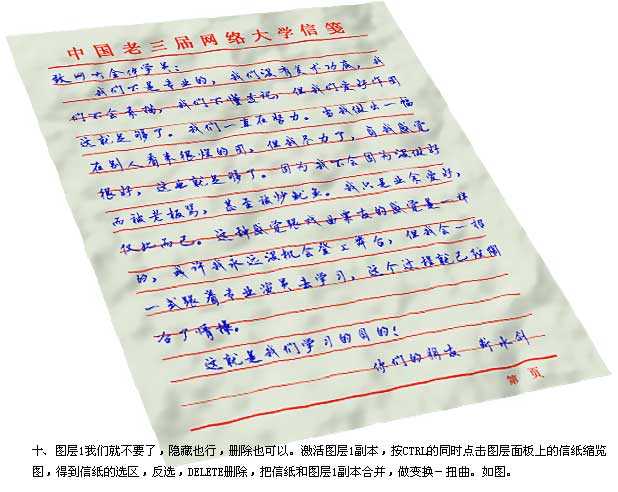 中国老三届网络大学信笺
致网大全体学员：
我们不是专业的，我们没有美术功底，我
们不会素描，我们不懂色彩，但我们爱好作图
这就足够了。我们一直在努力。当我做出一幅
在别人看来很烂的图，但我尽力了，自我感觉
很好，这也就足够了。因为我不会因为没做好
而被老板骂，甚至被炒鱿鱼。我只是业余爱好，
仅此而已。这种感觉跟戏曲票友的感觉是一样
的，或许我永远没机会登上舞台，但我会一招
一式跟着专业演员去学习，这个过程就已经陶
冶了情操。
这就是我们学习的目的！
你们的朋友 新冰剑
第 页
十、图层1我们就不要了，隐藏也行，删除也可以。激活图层1副本，按CTRL的同时点击图层面板上的信纸缩览
图，得到信纸的选区，反选，DELETE删除，把信纸和图层1副本合并，做变换－扭曲。如图。